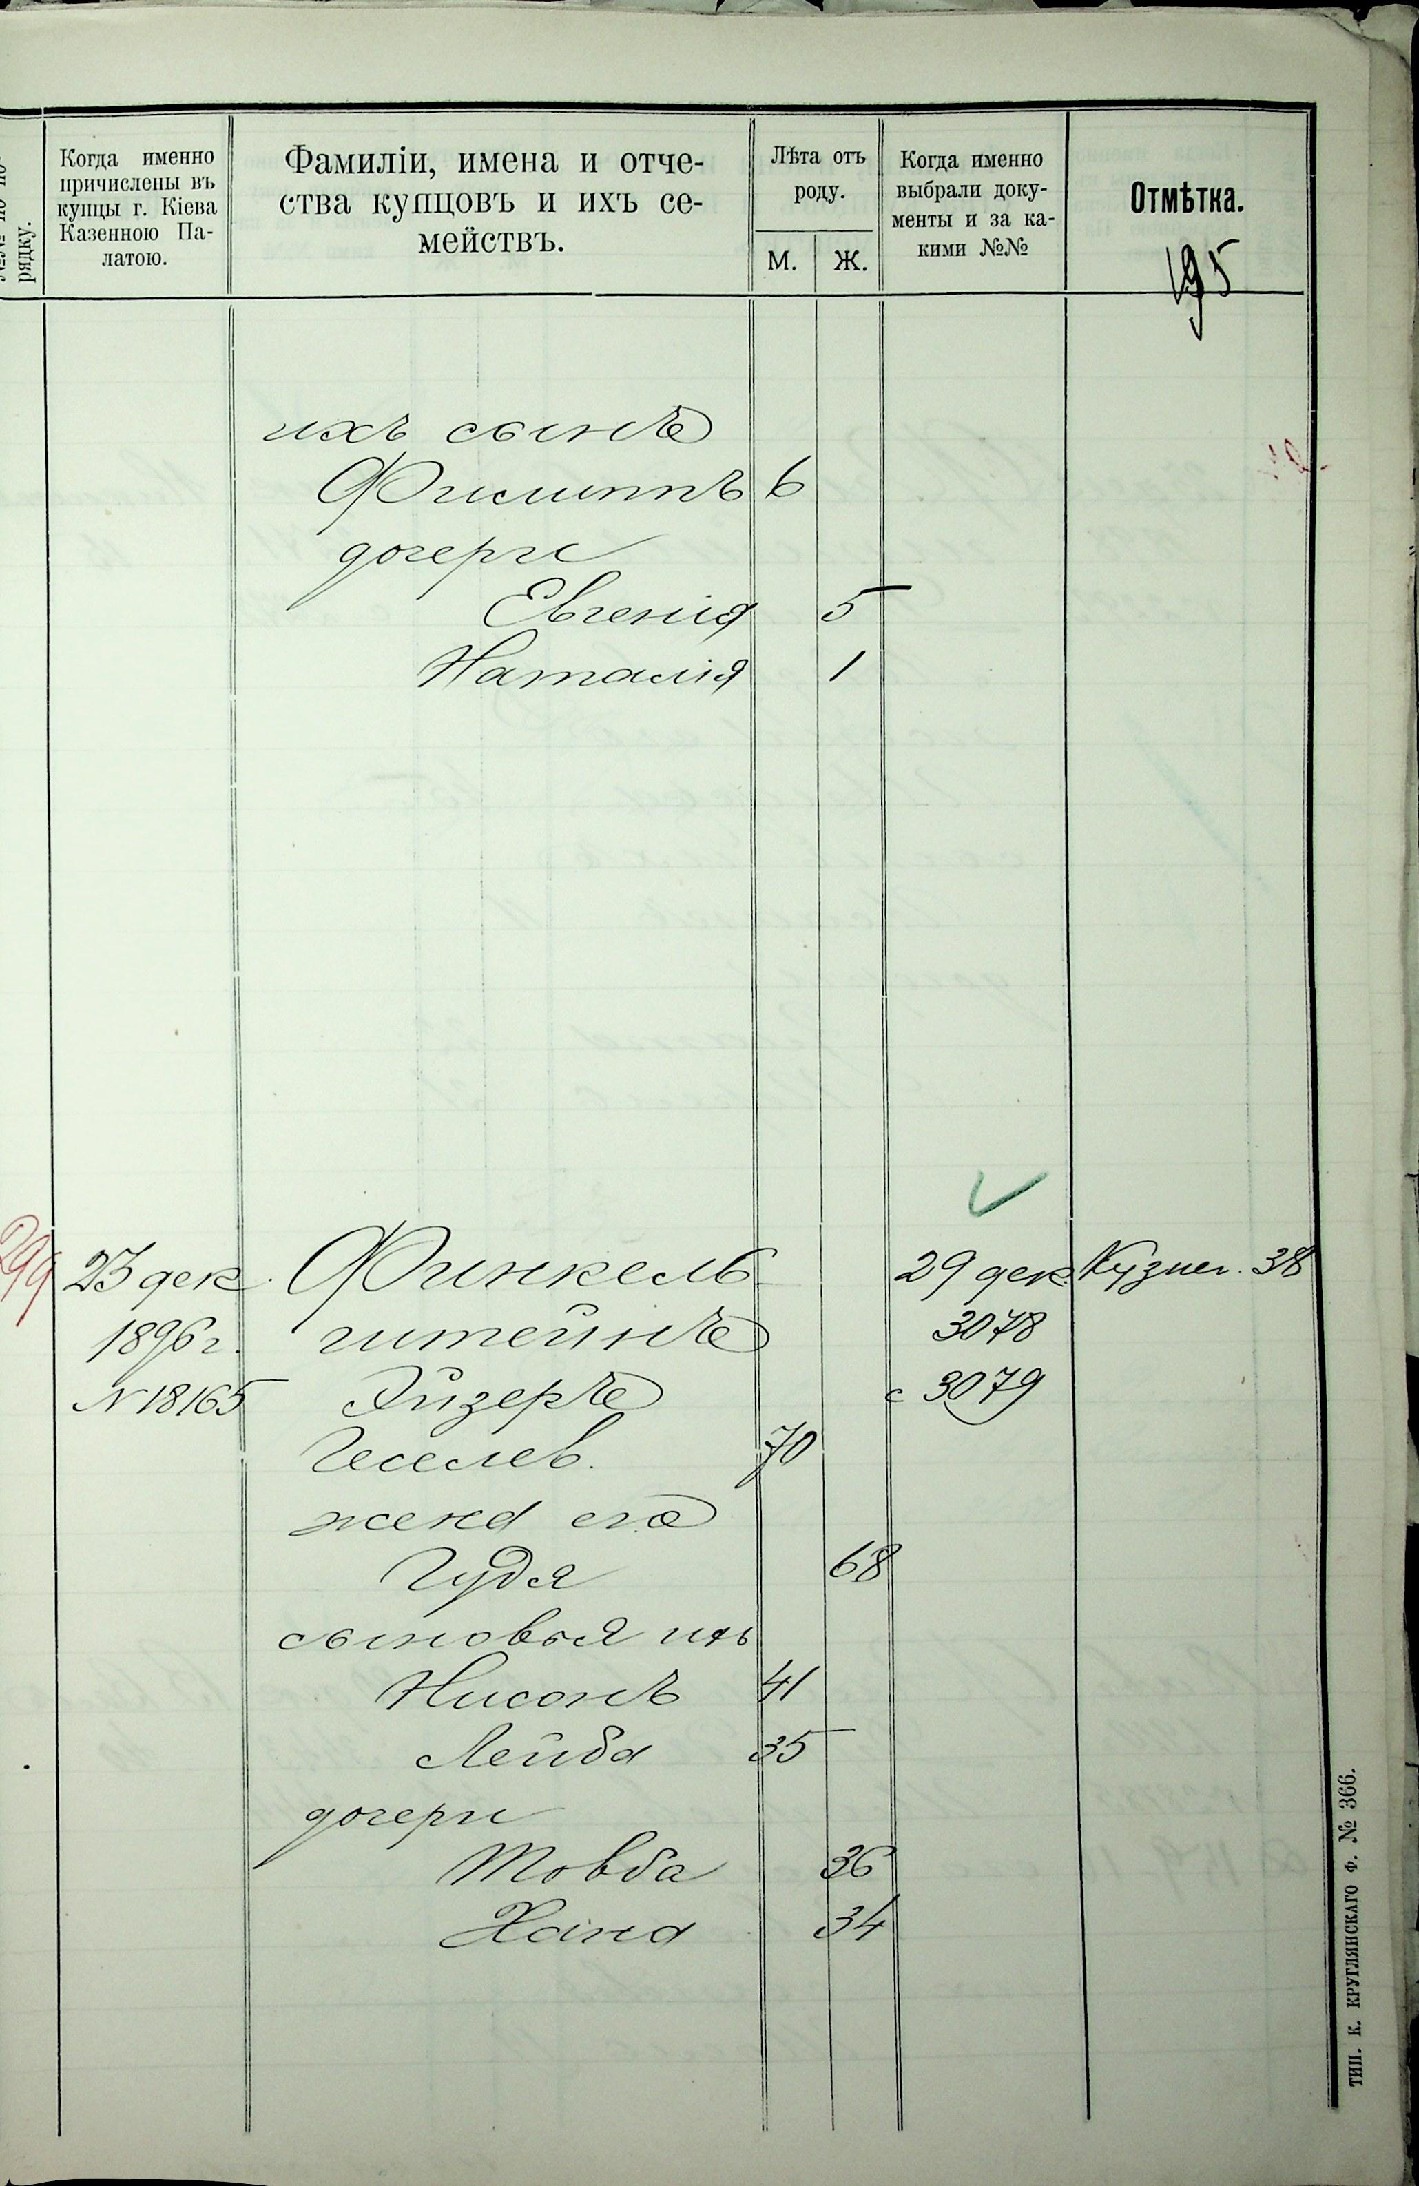 №№ по по-
рядку.
Когда именно
причислены въ
купцы г. Кіева
Казенною Па-
латою.
Фамиліи, имена и отче-
ства купцовъ и ихъ се-
мействъ.
Лѣта отъ
роду.
М. Ж.
Когда именно
выбрали доку-
менты и за ка-
кими №№
Отмѣтка.
195
ихъ сынъ
Филиппъ 6
дочери
Евгенія 5
Наталія 1
299 23 дек. Финкель 29 дек Кузнеч. 38
1896 г. штейнъ 3078
№ 18165 Эйзеръ с 3079
Геселев. 70
жена его
Гудя 68
сыновья ихъ
Нисонъ 41
Лейба 35
дочери
Товба 36
Хана 34
ТИП. К. КРУГЛЯНСКАГО Ф. № 366.